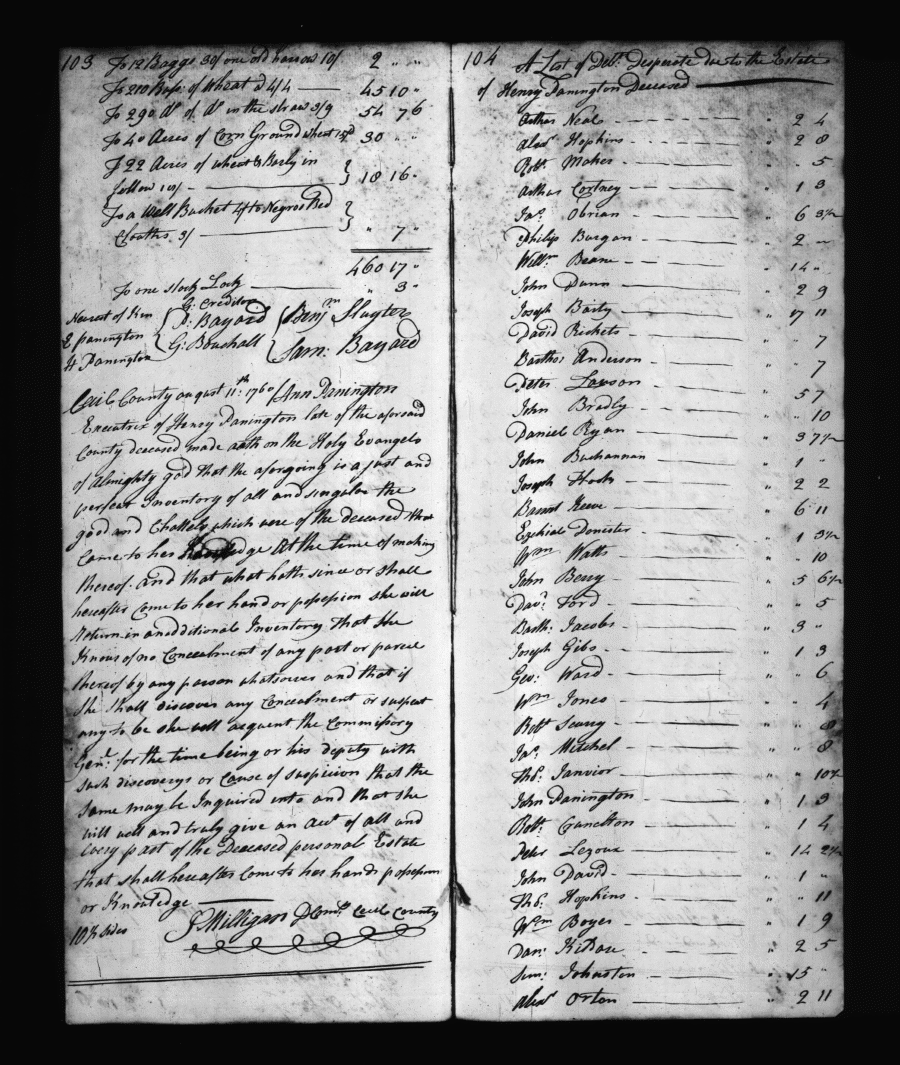 103 To 12 Baggs 30/ one old harrow 10/ 2 " "
To 210 Bush: of Wheat @ 4/4 45 10 "
To 290 Do of Do in the straw 3/9 54 7 6
To 40 Acres of Corn Ground wheat 30 " "
To 22 Acres of wheat & Barly in
fellow 18 16 "
To a Well Bucket 4/ to Negros Bed
Cloaths 3/ " 7 "
460 17 "
To one stock Lock " 3 "
Nearest of Kin G: Creditor
E Panington P: Bayard Benjm Slugter
H Panington G: Bouchall Sam: Bayard
Cecil County august 11th: 1760 Ann Panington
Executrix of Henry Panington late of the aforsaid
County deceased made oath on the Holy Evangels
of Almighty god that the aforgoing is a just and
perfect Inventory of all and singular the
good and Chattels which were of the deceased that
Came to her Knowledge At the time of making
thereof. and that what hath since or shall
hereafter Come to her hand or possession she will
Return in an additional Inventory That She
Knows of no Concealment of any part or parcel
thereof by any parson whatsoever and that if
She Shall discover any Concealment or suspect
any to be she will aquent the Commissory
Genl: for the time being or his deputy with
such discoverys or Cause of suspicion that the
same may be Inquired into and that she
will well and truly give an Acct of all and
every part of the Deceased personal Estate
that shall hereafter Come to her hands possession
or Knowledge
10½ sides J Milligan D Comy Cecil County
104 A List of Debts Desperate due to the Estate
of Henry Panington Deceased
Arthur Neal " 2 4
Alexr Hopkins " 2 8
Robt: Maker " " 5
Arthur Cortney " 1 3
Jas: Obrian " 6 3½
Philip Burgan " 2 "
Willm: Beane " 14 "
John Dunn " 2 9
Joseph Barty " 17 11
David Rickets " " 7
Barthos Anderson " " 7
Peter Lawson " 5 7
John Bradly " " 10
Daniel Ryan " 3 7½
John Buchannan " 1 "
Joseph Hooh " 2 2
Barnet Reeve " 6 11
Ezekial Demister " 1 3½
Wm Watts " " 10
John Berry " 5 6½
Davd: Ford " " 5
Barth: Jacobs " 3 "
Joseph Gibs " 1 3
Geo: Ward " " 6
Wm Jones " " 4
Robt Seany " " 8
Jas: Mitchel " " 8
Tho: Janvior " " 10½
John Panington " 1 3
Robt: Crunelton " 1 4
Peter Lezoux " 14 2½
John David " 1 "
Tho: Hopkins " " 11
Wm Boyer " 1 9
Dan: " 2 5
Sim: Johnston " 15 "
Alexr Orton " 2 11